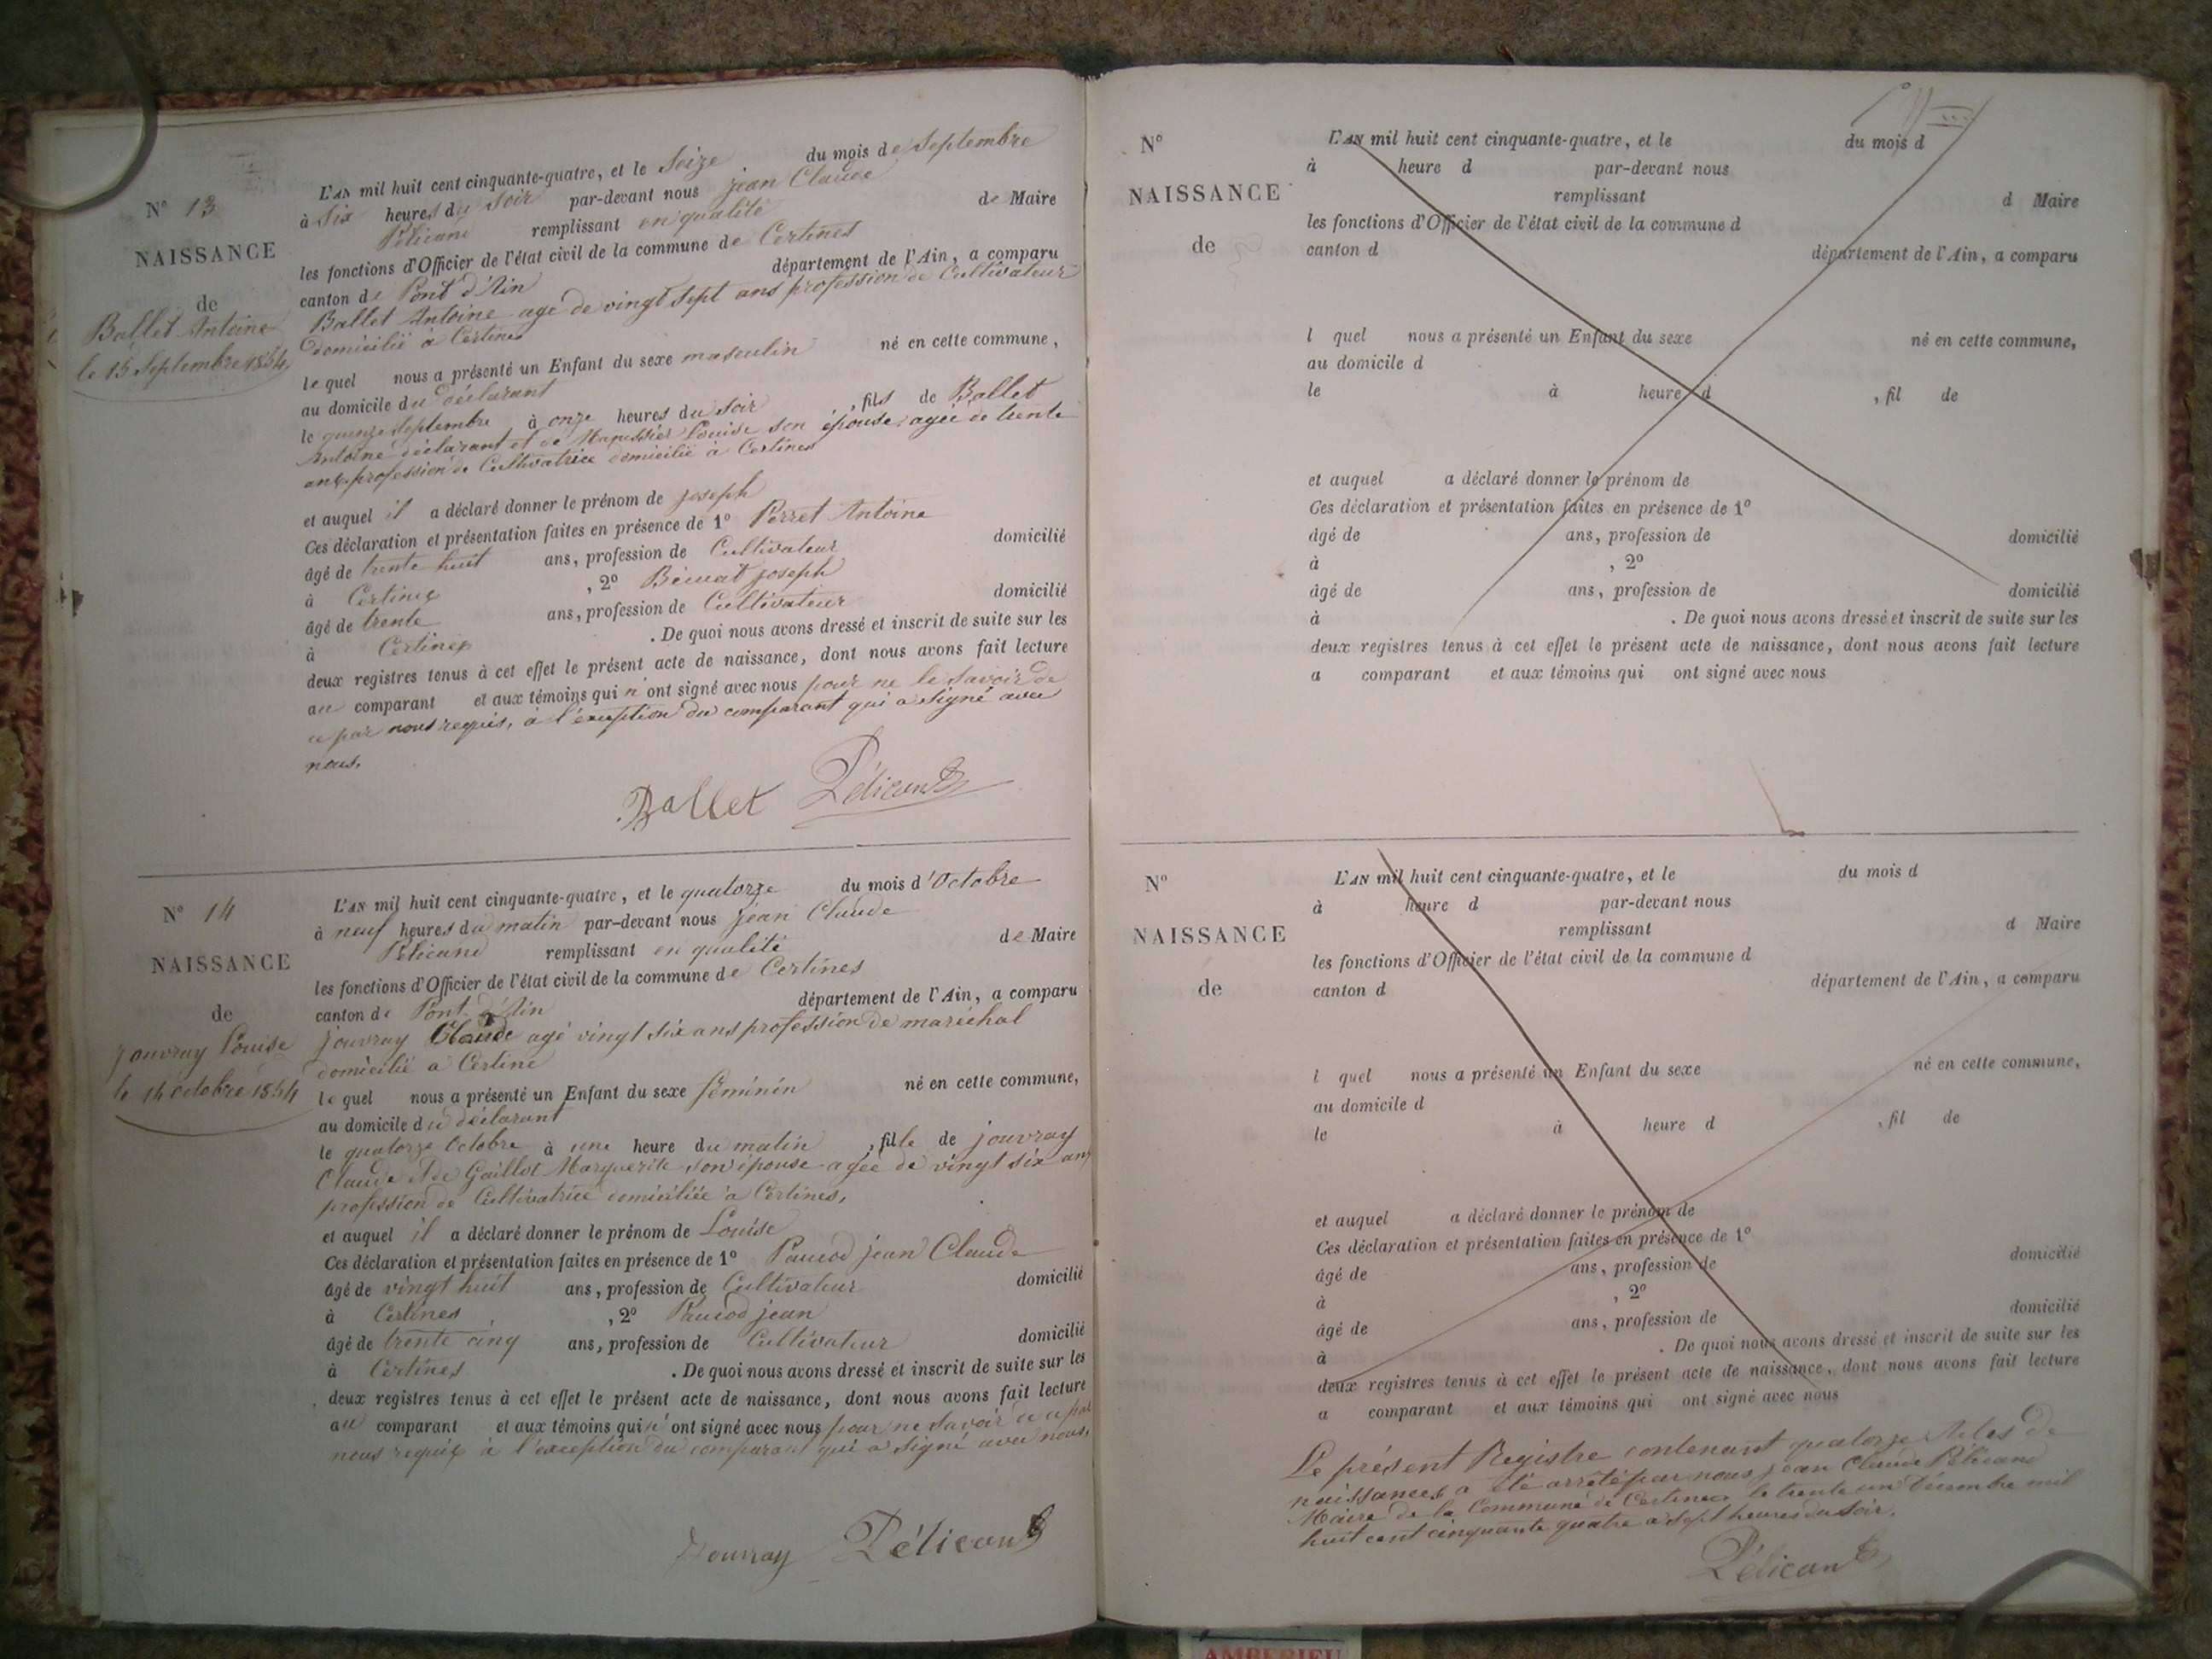 N° 13
NAISSANCE
de
Ballet Antoine
le 15 Septembre 1854
L'AN mil huit cent cinquante-quatre, et le Seize du mois de Septembre
à Six heures du Soir par-devant nous jean Claude
Pélicand remplissant en qualité de Maire
les fonctions d'Officier de l'état civil de la commune de Certines
canton de Pont d'Ain département de l'Ain, a comparu
Ballet Antoine age de vingt sept ans profession de Cultivateur
domicilié a Certines
lequel nous a présenté un Enfant du sexe masculin né en cette commune,
au domicile du déclarant
le quinze Septembre à onze heures du soir, fils de Ballet
Antoine déclarant et de Louise son épouse agée de trente
ans profession de Cultivatrice domicilié à Certines
et auquel il a déclaré donner le prénom de joseph
Ces déclaration et présentation faites en présence de 1° Perret Antoine
âgé de trente huit ans, profession de Cultivateur domicilié
à Certines, 2° joseph
âgé de trente ans, profession de Cultivateur domicilié
à Certines. De quoi nous avons dressé et inscrit de suite sur les
deux registres tenus à cet effet le présent acte de naissance, dont nous avons fait lecture
au comparant et aux témoins qui n'ont signé avec nous pour ne le savoir de
ce par nous requis, à l'exception du comparant qui a signé avec
nous.
Ballet Pélicand
N° 14
NAISSANCE
de
jouvray Louise
le 14 octobre 1854
L'AN mil huit cent cinquante-quatre, et le quatorze du mois d'Octobre
à neuf heures du matin par-devant nous jean Claude
Pélicand remplissant en qualité de Maire
les fonctions d'Officier de l'état civil de la commune de Certines
canton de Pont d'Ain département de l'Ain, a comparu
jouvray Claude agé vingt six ans profession de maréchal
domicilié a Certine
lequel nous a présenté un Enfant du sexe féminin né en cette commune,
au domicile du déclarant
le quatorze Octobre à une heure du matin, fille de jouvray
Claude et de Gaillot Marguerite son épouse agée de vingt six ans
profession de Cultivatrice domiciliée à Certines,
et auquel il a déclaré donner le prénom de Louise
Ces déclaration et présentation faites en présence de 1° jean Claude
âgé de vingt huit ans, profession de Cultivateur domicilié
à Certines, 2° jean
âgé de trente cinq ans, profession de Cultivateur domicilié
à Certines. De quoi nous avons dressé et inscrit de suite sur les
deux registres tenus à cet effet le présent acte de naissance, dont nous avons fait lecture
au comparant et aux témoins qui n'ont signé avec nous pour ne savoir de ce par
nous requis à l'exception du comparant qui a signé avec nous.
Jouvray Pélicand
N°
NAISSANCE
de
L'AN mil huit cent cinquante-quatre, et le du mois d
à heure d par-devant nous
remplissant d Maire
les fonctions d'Officier de l'état civil de la commune d
canton d département de l'Ain, a comparu
l quel nous a présenté un Enfant du sexe né en cette commune,
au domicile d
le à heure d, fil de
et auquel a déclaré donner le prénom de
Ces déclaration et présentation faites en présence de 1°
âgé de ans, profession de domicilié
à, 2°
âgé de ans, profession de domicilié
à. De quoi nous avons dressé et inscrit de suite sur les
deux registres tenus à cet effet le présent acte de naissance, dont nous avons fait lecture
a comparant et aux témoins qui ont signé avec nous
N°
NAISSANCE
de
L'AN mil huit cent cinquante-quatre, et le du mois d
à heure d par-devant nous
remplissant d Maire
les fonctions d'Officier de l'état civil de la commune d
canton d département de l'Ain, a comparu
l quel nous a présenté un Enfant du sexe né en cette commune,
au domicile d
le à heure d, fil de
et auquel a déclaré donner le prénom de
Ces déclaration et présentation faites en présence de 1°
âgé de ans, profession de domicilié
à, 2°
âgé de ans, profession de domicilié
à. De quoi nous avons dressé et inscrit de suite sur les
deux registres tenus à cet effet le présent acte de naissance, dont nous avons fait lecture
a comparant et aux témoins qui ont signé avec nous
Le présent Registre contenant quatorze Actes de
naissances a été arrêté par nous jean Claude Pélicand
Maire de la Commune de Certines le trente un Décembre mil
huit cent cinquante quatre a Sept heures du Soir.
Pélicand
AMBERIEU